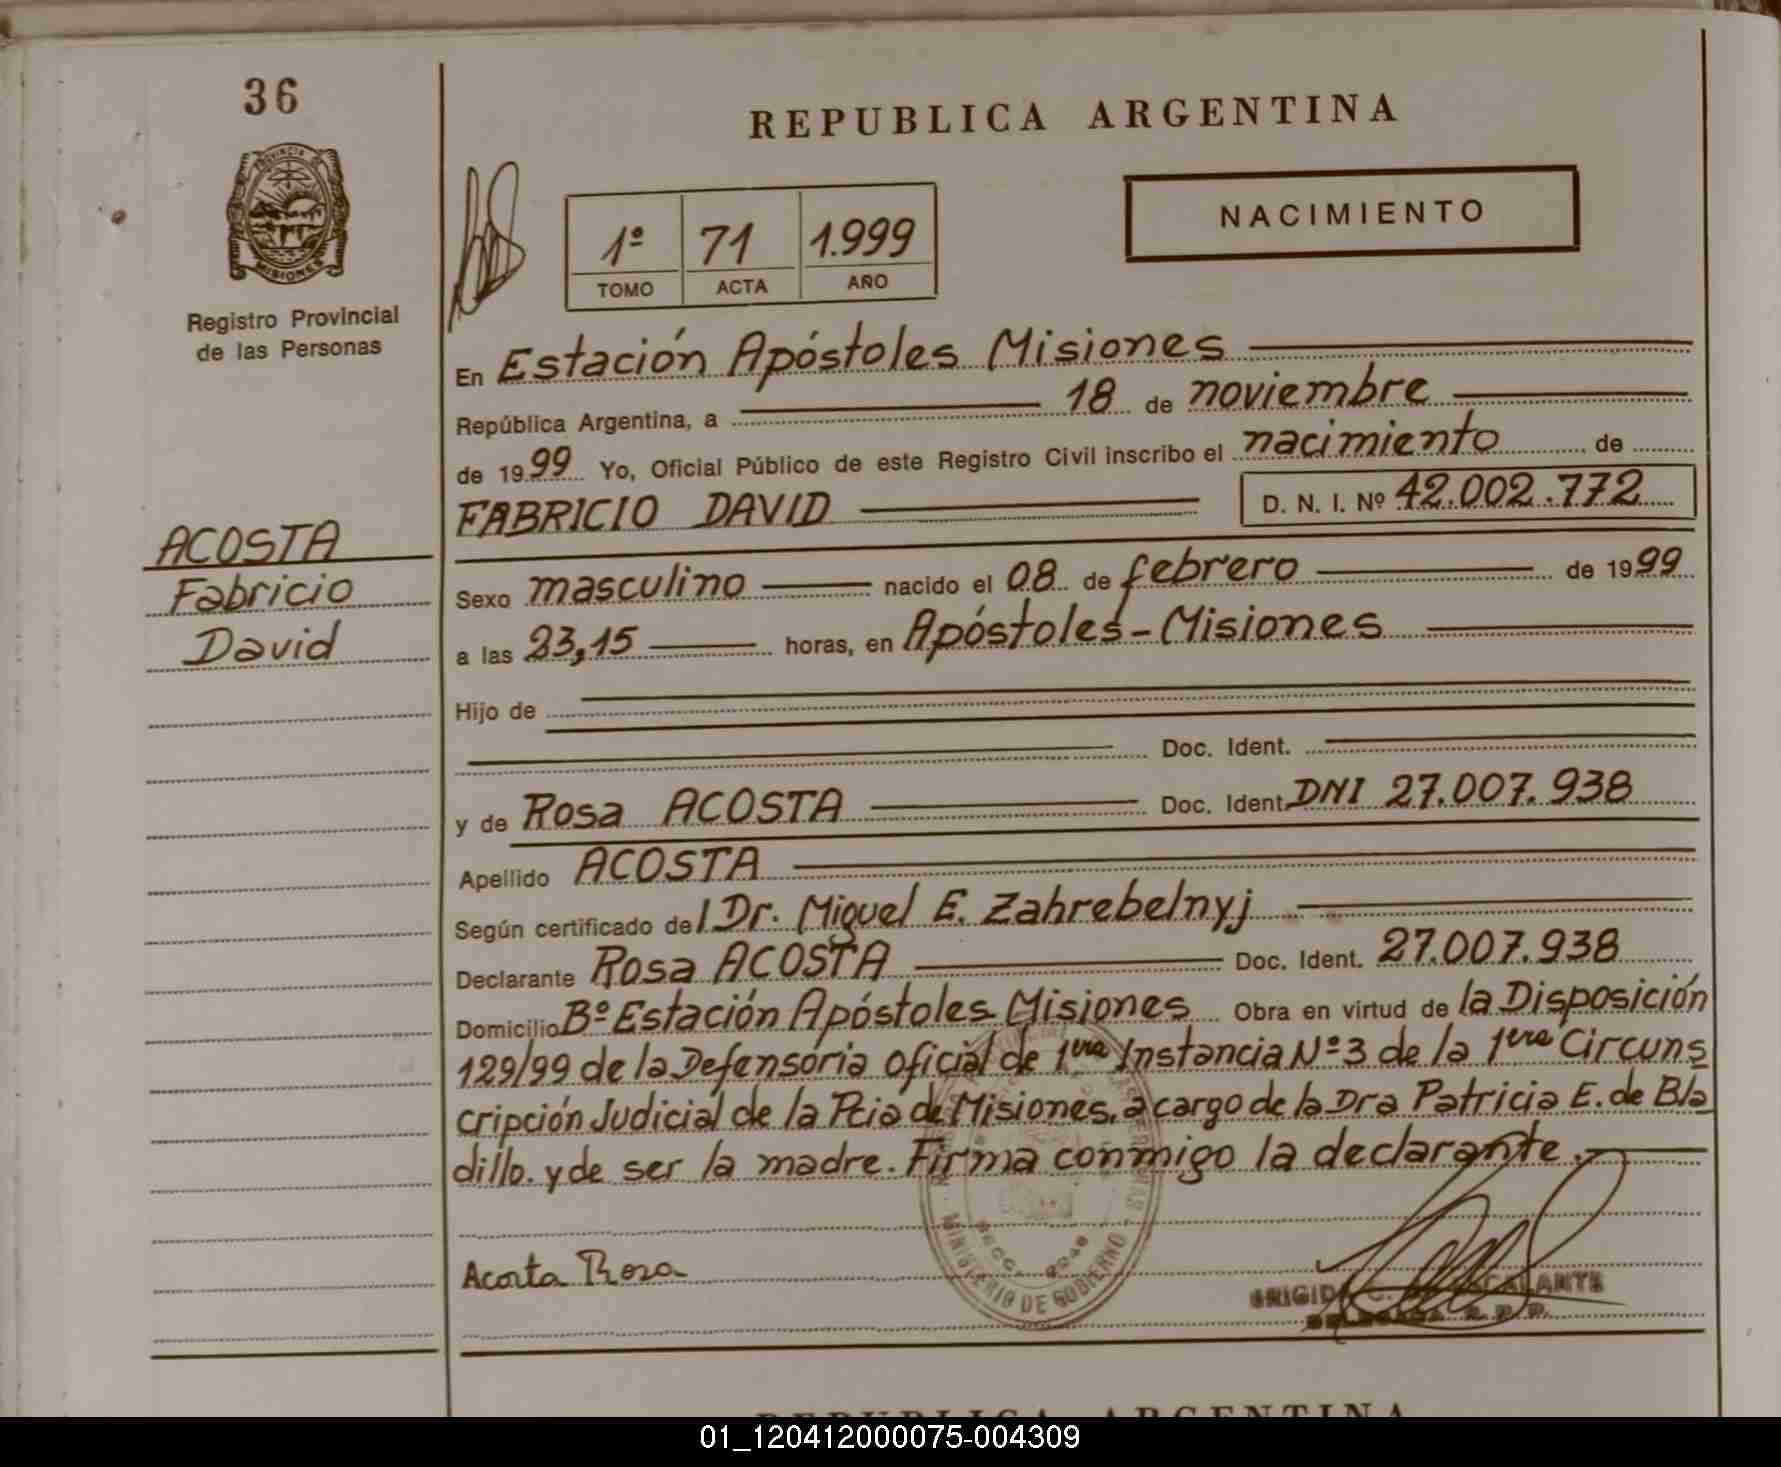 36
REPUBLICA ARGENTINA
PROVINCIA DE
MISIONES
Registro Provincial
de las Personas
1º 71 1.999
TOMO ACTA AÑO
NACIMIENTO
En Estación Apóstoles Misiones
República Argentina, a 18 de noviembre
de 1999 Yo, Oficial Público de este Registro Civil inscribo el nacimiento de
FABRICIO DAVID D. N. I. Nº 42.002.772
ACOSTA
Fabricio
David
Sexo masculino nacido el 08 de febrero de 1999
a las 23,15 horas, en Apóstoles-Misiones
Hijo de
Doc. Ident.
y de Rosa ACOSTA Doc. Ident. DNI 27.007.938
Apellido ACOSTA
Según certificado del Dr. Miguel E. Zahrebelnyj
Declarante Rosa ACOSTA Doc. Ident. 27.007.938
Domicilio Bº Estación Apóstoles-Misiones Obra en virtud de la Disposición
129/99 de la Defensoria Oficial de 1era Instancia Nº 3 de la 1era Circuns
cripción Judicial de la Pcia de Misiones, a cargo de la Dra Patricia E. de Bla
dillo. y de ser la madre. Firma conmigo la declarante.
MINISTERIO DE GOBIERNO
Acosta Rosa
REPUBLICA ARGENTINA
01_120412000075-004309